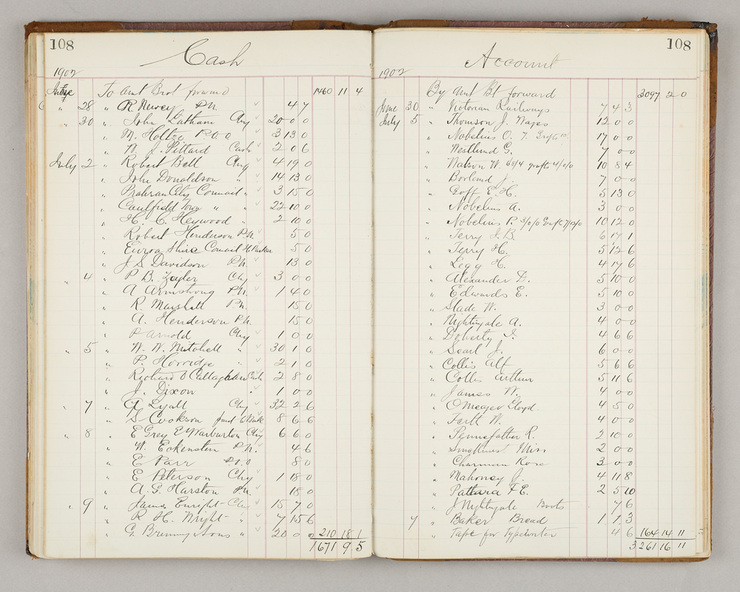 108
Cash
1902
To Amt Brot forward 1460 11 4
28 " R. Murcy P.N. 4 7
" 30 " John Latham Chq 20 0 0
" M. Holtze P.O.O 3 13 0
" W. J. Pittard Cash 2 0 6
July 2 " Robert Bell Chq 4 19 0
" John Donaldson " 14 13 0
" Prahran City Council " 3 15 0
" Caulfield Town " " 22 10 0
" H. C. Heywood " 2 10 0
" Robert Henderson P.N. 5 0
" Euroa Shire Council 5 0
" J. S. Davidson P.N. 13 0
" 4 " P. B. Chq 3 0 0
" A Armstrong P.N. 1 4 0
" R. Marshall P.N. 15 0
" A. Henderson P.N. 15 0
" P Arnold Chq 1 0 0
" 5 " W. W. Mitchell " 30 1 0
" P. Horridge " 2 1 0
" Richard 2 8 0
" J. Dixon 1 0 0
" 7 " A Lyall Chq 32 2 6
" S Cookson 8 6 6
" 8 " E Grey E Warburton Chq 6 6 0
" W. Eckenstein P.N. 4 6
" E Parr P.O.O 8 0
" E Peterson Chq 1 18 0
" A. G. Harston P.N. 18 0
" 9 " James Enright Chq 15 7 0
" R. H. Wright " 7 15 6
" G. " 20 0 0 210 18 1
1671 9 5
108
Account
1902
By Amt Bt forward 3097 2 0
June 30 " Victorian Railways 7 4 3
July 5 " Thomson J. Wages 12 0 0
" Nobelius O. 17 0 0
" Westlund G. 7 0 0
" Watson W. 10 8 4
" Borland J. 7 0 0
" Goff E. H. 5 13 0
" Nobelius A. 3 0 0
" Nobelius P. 10 12 0
" Terry J. B. 6 17 1
" Terry H. 5 12 6
" Legg H. 4 17 6
" Alexander D. 5 10 0
" Edwards E. 5 10 0
" Slade W. 3 0 0
" Nightingale A. 4 0 0
" Doherty J. 4 6 6
" Searl J. 6 0 0
" Collis Alf 5 6 6
" Collis Arthur 5 11 6
" James W. 4 0 0
" Lloyd. 4 5 0
" W. 4 0 0
" Pennefather R. 2 10 0
" Miss 2 0 0
" Charman Rosa 3 0 0
" Mahoney J. 4 11 8
" 2 5 10
" J Nightingale Boots 7 6
" 7 " Baker Bread 1 1 3
" Tape for Typewriter 4 6 164 14 11
3261 16 11